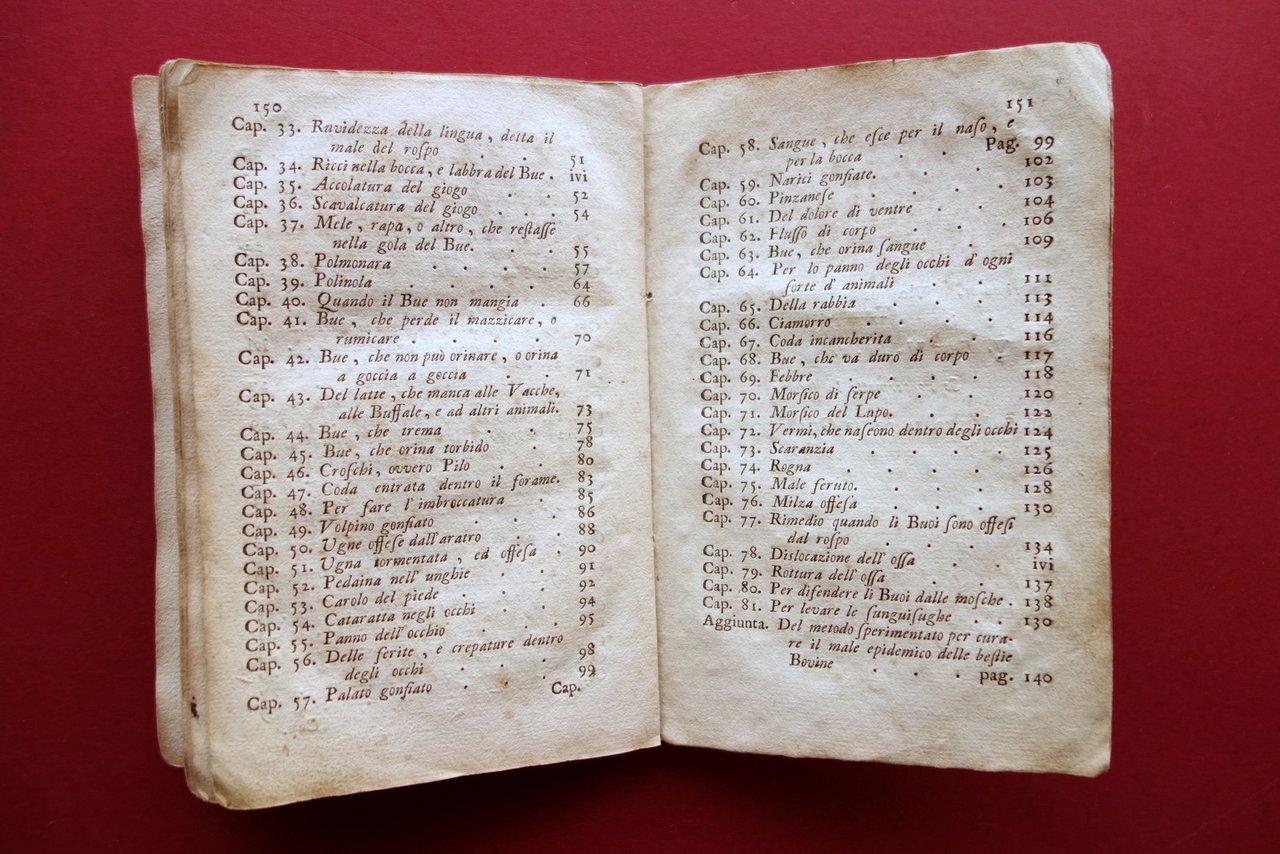 150
Cap. 33. Ravidezza della lingua, detta il
male del roſpo . . 51
Cap. 34. Ricci nella bocca, e labbra del Bue. ivi
Cap. 35. Accolatura del giogo . . 52
Cap. 36. Scavalcatura del giogo . . . 54
Cap. 37. Mele, rapa, o altro, che reſtaſſe
nella gola del Bue. . . . 55
Cap. 38. Polmonara . . . . 57
Cap. 39. Polinola . . . . . 64
Cap. 40. Quando il Bue non mangia . 66
Cap. 41. Bue, che perde il mazzicare, o
rumicare . . . . . 70
Cap. 42. Bue, che non può orinare, o orina
a goccia a goccia . . . 71
Cap. 43. Del latte, che manca alle Vacche,
alle Buffale, e ad altri animali. 73
Cap. 44. Bue, che trema . . . 75
Cap. 45. Bue, che orina torbido . . 78
Cap. 46. Croſchi, ovvero Pilo . . . 80
Cap. 47. Coda entrata dentro il forame. 83
Cap. 48. Per fare l'imbroccatura . . 85
Cap. 49. Volpino gonfiato . . . 86
Cap. 50. Ugne offeſe dall'aratro . . 88
Cap. 51. Ugna tormentata, ed offeſa . 90
Cap. 52. Pedaina nell' unghie . . . 91
Cap. 53. Carolo del piede . . . 92
Cap. 54. Cataratta negli occhi . . . 94
Cap. 55. Panno dell'occhio . . . . 95
Cap. 56. Delle ferite, e crepature dentro
degli occhi . . . . 98
Cap. 57. Palato gonfiato . . . 99
Cap.
151
Cap. 58. Sangue, che eſce per il naſo, e
per la bocca . . Pag. 99
Cap. 59. Narici gonfiate. . . . 102
Cap. 60. Pinzaneſe . . . . 103
Cap. 61. Del dolore di ventre . . 104
Cap. 62. Fluſſo di corpo . . . 106
Cap. 63. Bue, che orina ſangue . . 109
Cap. 64. Per lo panno degli occhi d' ogni
ſorte d' animali . . . 111
Cap. 65. Della rabbia . . . . 113
Cap. 66. Ciamorro . . . . 114
Cap. 67. Coda incancherita . . . 116
Cap. 68. Bue, che va duro di corpo . 117
Cap. 69. Febbre . . . . 118
Cap. 70. Morſico di ſerpe . . . 120
Cap. 71. Morſico del Lupo. . . . 122
Cap. 72. Vermi, che naſeono dentro degli occhi 124
Cap. 73. Scaranzia . . . . 125
Cap. 74. Rogna . . . . . 126
Cap. 75. Male feruto. . . . . 128
Cap. 76. Milza offeſa . . . . 130
Cap. 77. Rimedio quando li Buoi ſono offeſi
dal roſpo . . . . 134
Cap. 78. Dislocazione dell' oſſa . . ivi
Cap. 79. Rottura dell' oſſa . . . 137
Cap. 80. Per difendere li Buoi dalle moſche . 138
Cap. 81. Per levare le ſanguiſughe . . 130
Aggiunta. Del metodo ſperimentato per cura-
re il male epidemico delle beſtie
Bovine . . . . pag. 140